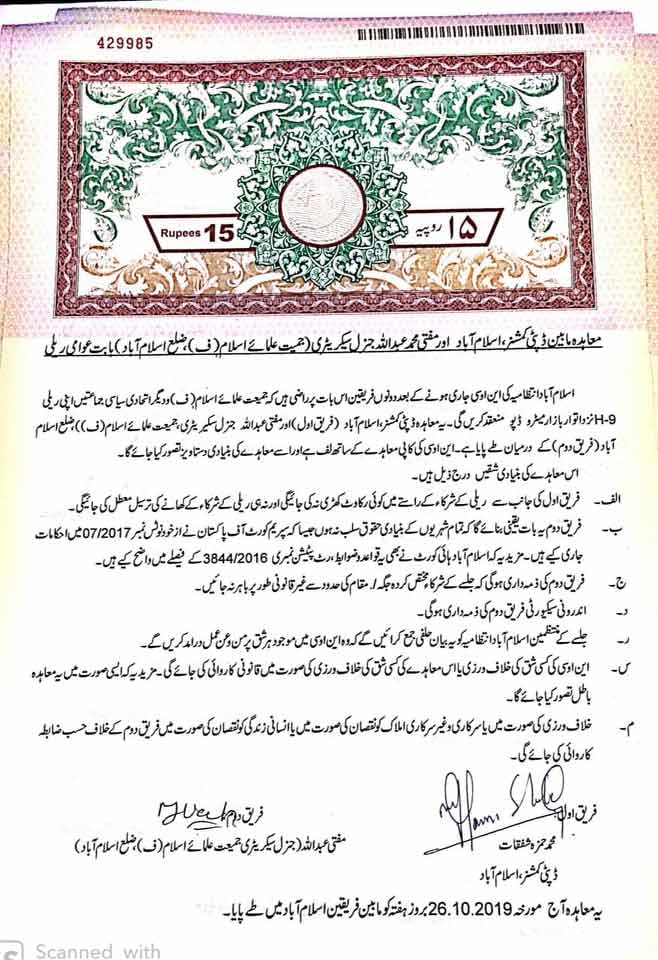 429985
Rupees 15
۱۵ روپیہ
معاہدہ مابین ڈپٹی کمشنر، اسلام آباد اور مفتی محمد عبداللہ جنرل سیکریٹری (جمیعت علمائے اسلام (ف)، ضلع اسلام آباد) بابت عوامی ریلی
اسلام آباد انتظامیہ کی این او سی جاری ہونے کے بعد دونوں فریقین اس بات پر راضی ہیں کہ جمیعت علمائے اسلام (ف) و دیگر اتحادی سیاسی جماعتیں اپنی ریلی
H-9 نزد اتوار بازار میٹرو ڈپو منعقد کریں گی۔ یہ معاہدہ ڈپٹی کمشنر، اسلام آباد (فریق اول) اور مفتی عبداللہ جنرل سیکریٹری، جمیعت علمائے اسلام (ف)) ضلع اسلام
آباد (فریق دوم) کے درمیان طے پایا ہے۔ این او سی کی کاپی معاہدے کے ساتھ لف ہے اور اسے معاہدے کی بنیادی دستاویز تصور کیا جائے گا۔
اس معاہدے کی بنیادی شقیں درج ذیل ہیں۔
الف۔ فریق اول کی جانب سے ریلی کے شرکاء کے راستے میں کوئی رکاوٹ کھڑی نہ کی جائیگی اور نہ ہی ریلی کے شرکاء کے کھانے کی ترسیل معطل کی جائیگی۔
ب۔ فریق دوم یہ بات یقینی بنائے گا کہ تمام شہریوں کے بنیادی حقوق سلب نہ ہوں جیسا کہ سپریم کورٹ آف پاکستان نے از خود نوٹس نمبر 07/2017 میں احکامات
جاری کیے ہیں۔ مزید یہ کہ اسلام آباد ہائی کورٹ نے بھی یہ قواعد و ضوابط، رٹ پٹیشن نمبری 3844/2016 کے فیصلے میں واضح کیے ہیں۔
ج۔ فریق دوم کی ذمہ داری ہوگی کہ جلسے کے شرکاء مختص کردہ جگہ / مقام کی حدود سے غیر قانونی طور پر باہر نہ جائیں۔
د۔ اندرونی سیکیورٹی فریق دوم کی ذمہ داری ہوگی۔
ر۔ جلسے کے منتظمین اسلام آباد انتظامیہ کو یہ بیان حلفی جمع کرائیں گے کہ وہ این او سی میں موجود ہر شق پر من و عن عمل درامد کریں گے۔
س۔ این او سی کی کسی شق کی خلاف ورزی یا اس معاہدے کی کسی شق کی خلاف ورزی کی صورت میں قانونی کاروائی کی جائے گی۔ مزید یہ کہ ایسی صورت میں یہ معاہدہ
باطل تصور کیا جائے گا۔
م۔ خلاف ورزی کی صورت میں یا سرکاری و غیر سرکاری املاک کو نقصان کی صورت میں یا انسانی زندگی کو نقصان کی صورت میں فریق دوم کے خلاف حسب ضابطہ
کاروائی کی جائے گی۔
فریق اول
محمد حمزہ شفقات
ڈپٹی کمشنر، اسلام آباد
فریق دوم
مفتی عبداللہ (جنرل سیکریٹری جمیعت علمائے اسلام (ف)، ضلع اسلام آباد)
یہ معاہدہ آج مورخہ 26.10.2019 بروز ہفتہ کو مابین فریقین اسلام آباد میں طے پایا۔
Scanned with